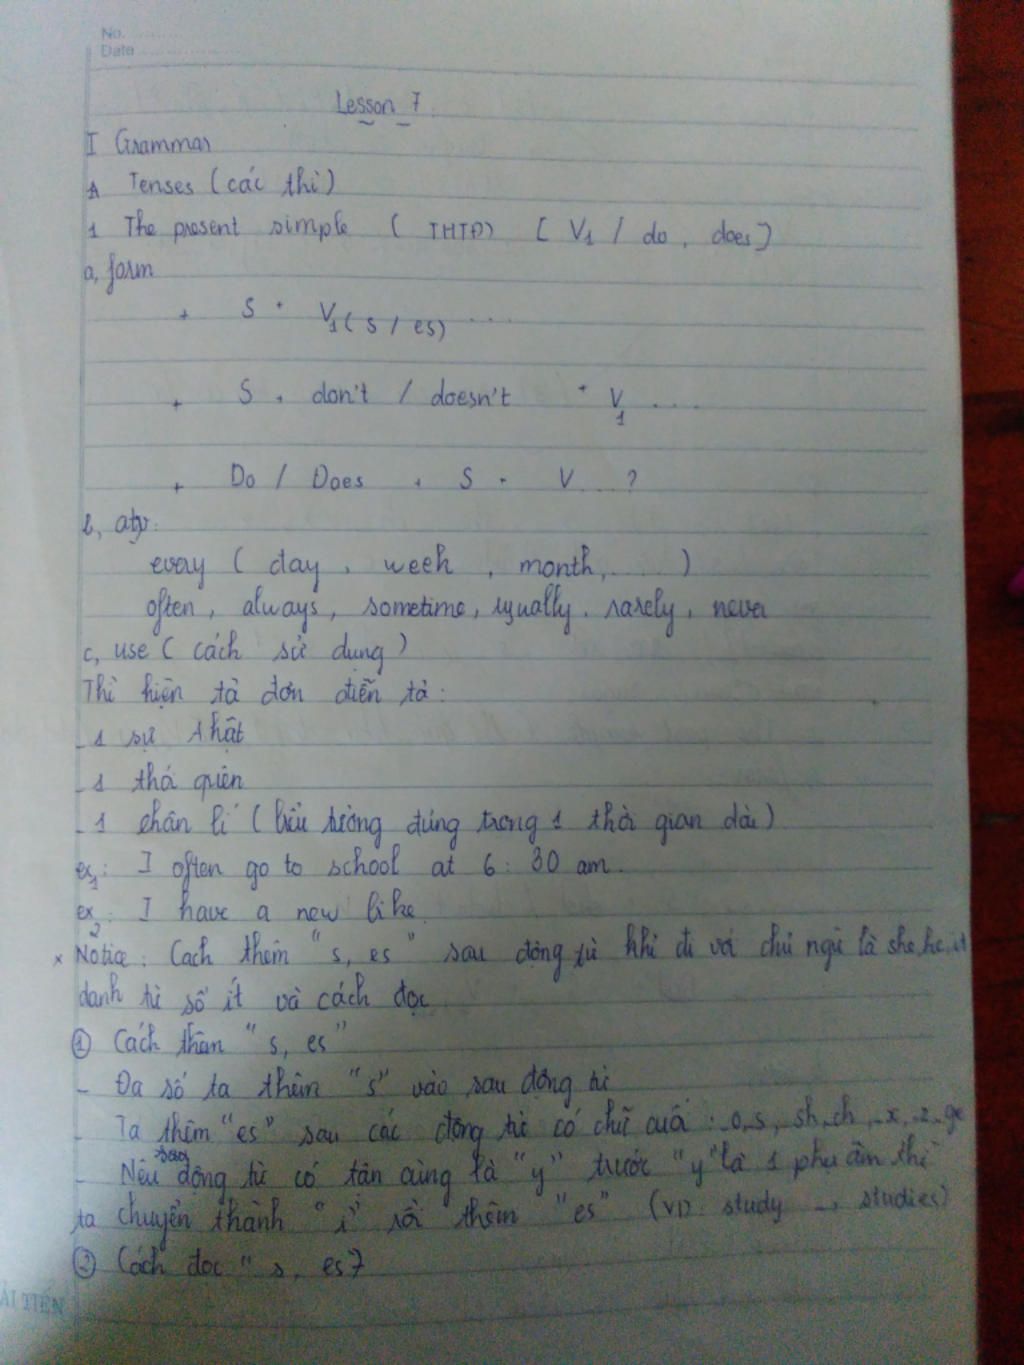 No. ............
Date ....................
Lesson 7
I Grammar
A Tenses (các thì)
1 The present simple (THTĐ) [V1 / do, does]
a, form
+ S + V1(s / es) ....
+ S + don't / doesn't + V1 ....
+ Do / Does + S + V ... ?
b,
every (day, week, month, ....)
often, always, sometime, usually, rarely, never
c, use (cách sử dụng)
Thì hiện tả đơn diễn tả:
- 1 sự thật
- 1 thó quên
- 1 chân lí (hiểu tường đúng trong 1 thời gian dài)
ex1: I often go to school at 6:30 am.
ex2: I have a new like.
* Notice: Cach thêm "s, es" sau động từ khi đi với chủ ngữ là she, he, it
danh từ số ít và cách đọc
① Cách thân "s, es"
- Đa số ta thêm "s" vào sau động từ
- Ta thêm "es" sau các động từ có chữ cuối: -o, s, sh, ch, -x, -z, -ge
- Nếu sau động từ có tân cùng là "y" trước "y" là 1 phụ âm thì
ta chuyển thành "i" rồi thêm "es" (VD: study → studies)
② Cách đọc "s, es"
ẢI TIẾN